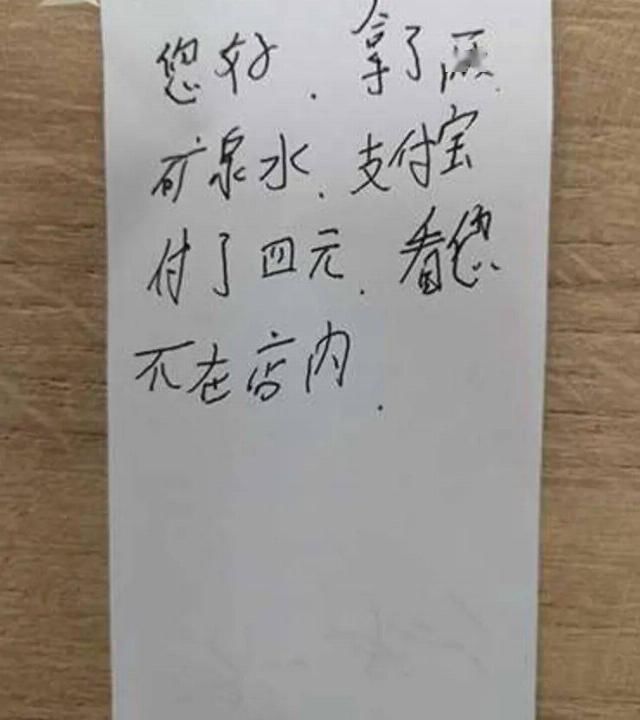 您好.拿了
矿泉水.支付宝
付了四元.看您
不在店内.